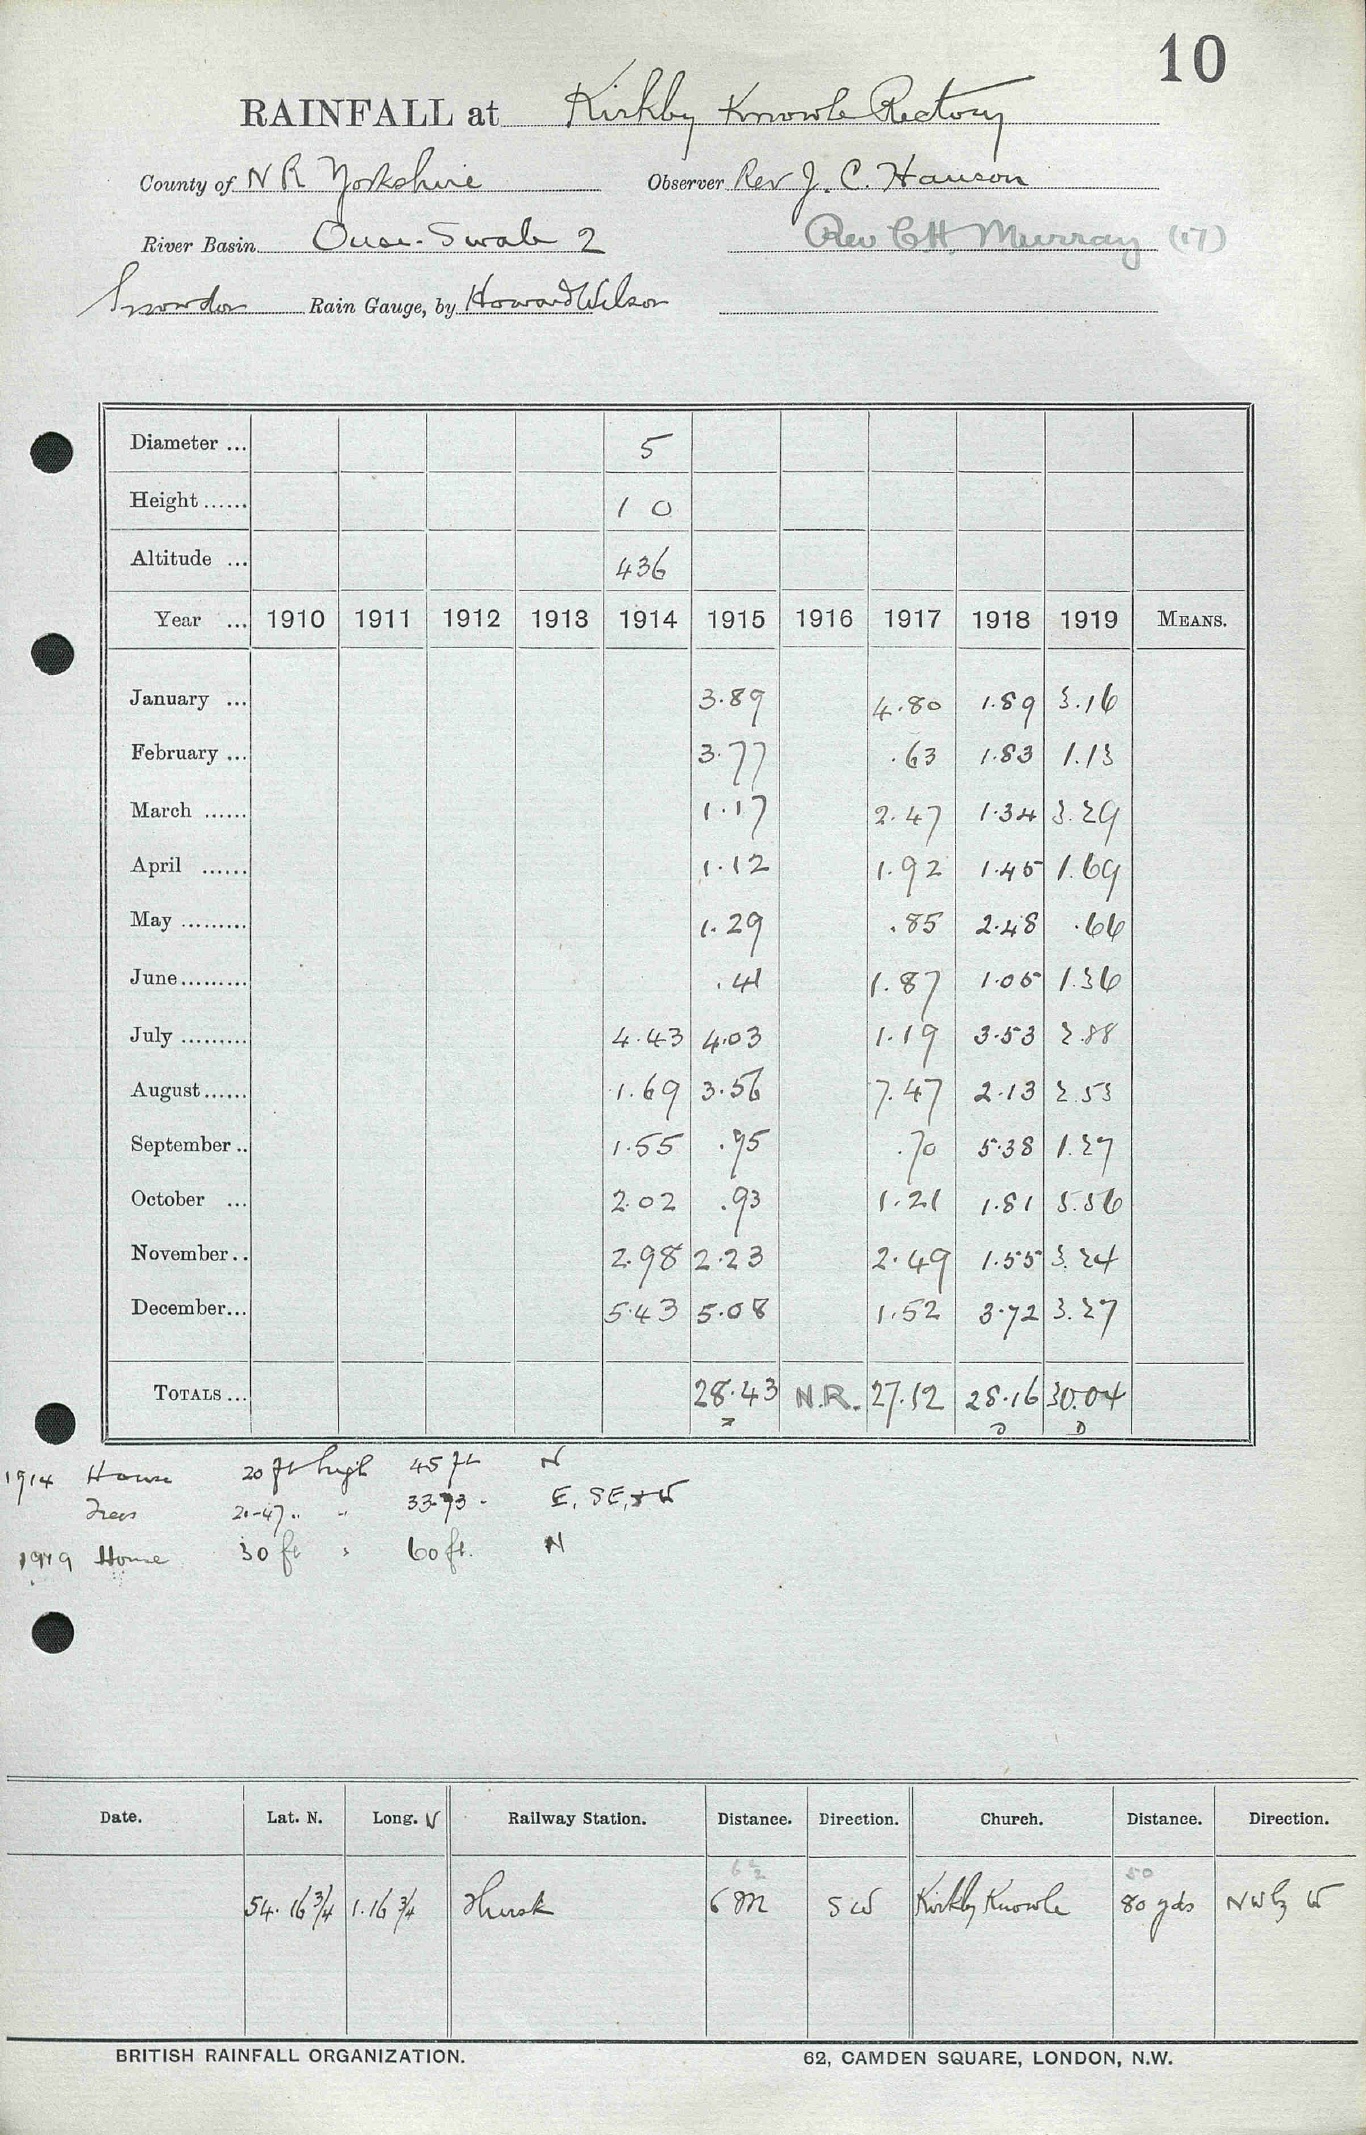 10
RAINFALL at Kirkby Knowle Rectory
County of N R Yorkshire Observer Rev J. C. Hanson
River Basin Ouse-Swale 2 Rev C H Murray (17)
Snowdon Rain Gauge, by Howard Wilson
Diameter ... 5
Height ...... 1 0
Altitude ... 436
Year ... 1910 1911 1912 1913 1914 1915 1916 1917 1918 1919 MEANS.
January ... 3.89 4.80 1.89 3.16
February ... 3.77 .63 1.83 1.13
March ...... 1.17 2.47 1.34 3.29
April ...... 1.12 1.92 1.45 1.69
May ......... 1.29 .85 2.48 .66
June ......... .41 1.87 1.05 1.36
July ......... 4.43 4.03 1.19 3.53 2.88
August ...... 1.69 3.56 7.47 2.13 2.53
September .. 1.55 .95 .70 5.38 1.27
October ... 2.02 .93 1.21 1.81 5.56
November .. 2.98 2.23 2.49 1.55 3.24
December ... 5.43 5.08 1.52 3.72 3.27
TOTALS ... 28.43 N.R. 27.12 28.16 30.04
1914 House 20 ft high 45 ft N
Trees 21-47 " " 33-93 " E, SE, & W
1919 House 30 ft " 60 ft. N
Date. Lat. N. Long. W Railway Station. Distance. Direction. Church. Distance. Direction.
6½ 50
54. 16¾ 1.16¾ Thirsk 6 M SW Kirkby Knowle 80 yds NW by W
BRITISH RAINFALL ORGANIZATION. 62, CAMDEN SQUARE, LONDON, N.W.